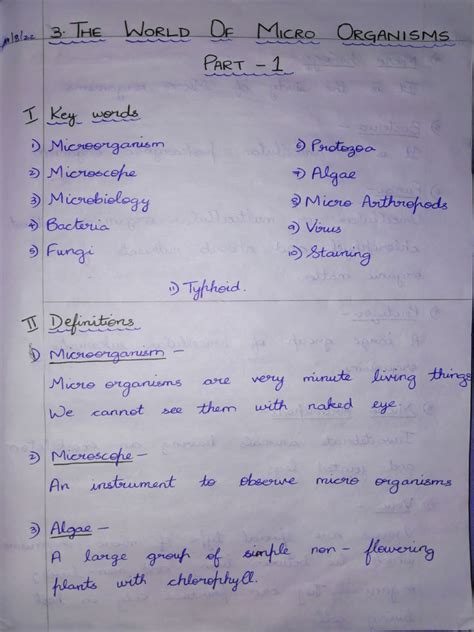 3. THE WORLD OF MICRO ORGANISMS
PART - 1
I Key words
1) Microorganism
2) Microscope
3) Microbiology
4) Bacteria
5) Fungi
6) Protozoa
7) Algae
8) Micro Arthropods
9) Virus
10) Staining
11) Typhoid.
II Definitions
1) Microorganism -
Micro organisms are very minute living things
We cannot see them with naked eye.
2) Microscope -
An instrument to observe micro organisms
3) Algae -
A large group of simple non - flowering
plants with chlorophyll.